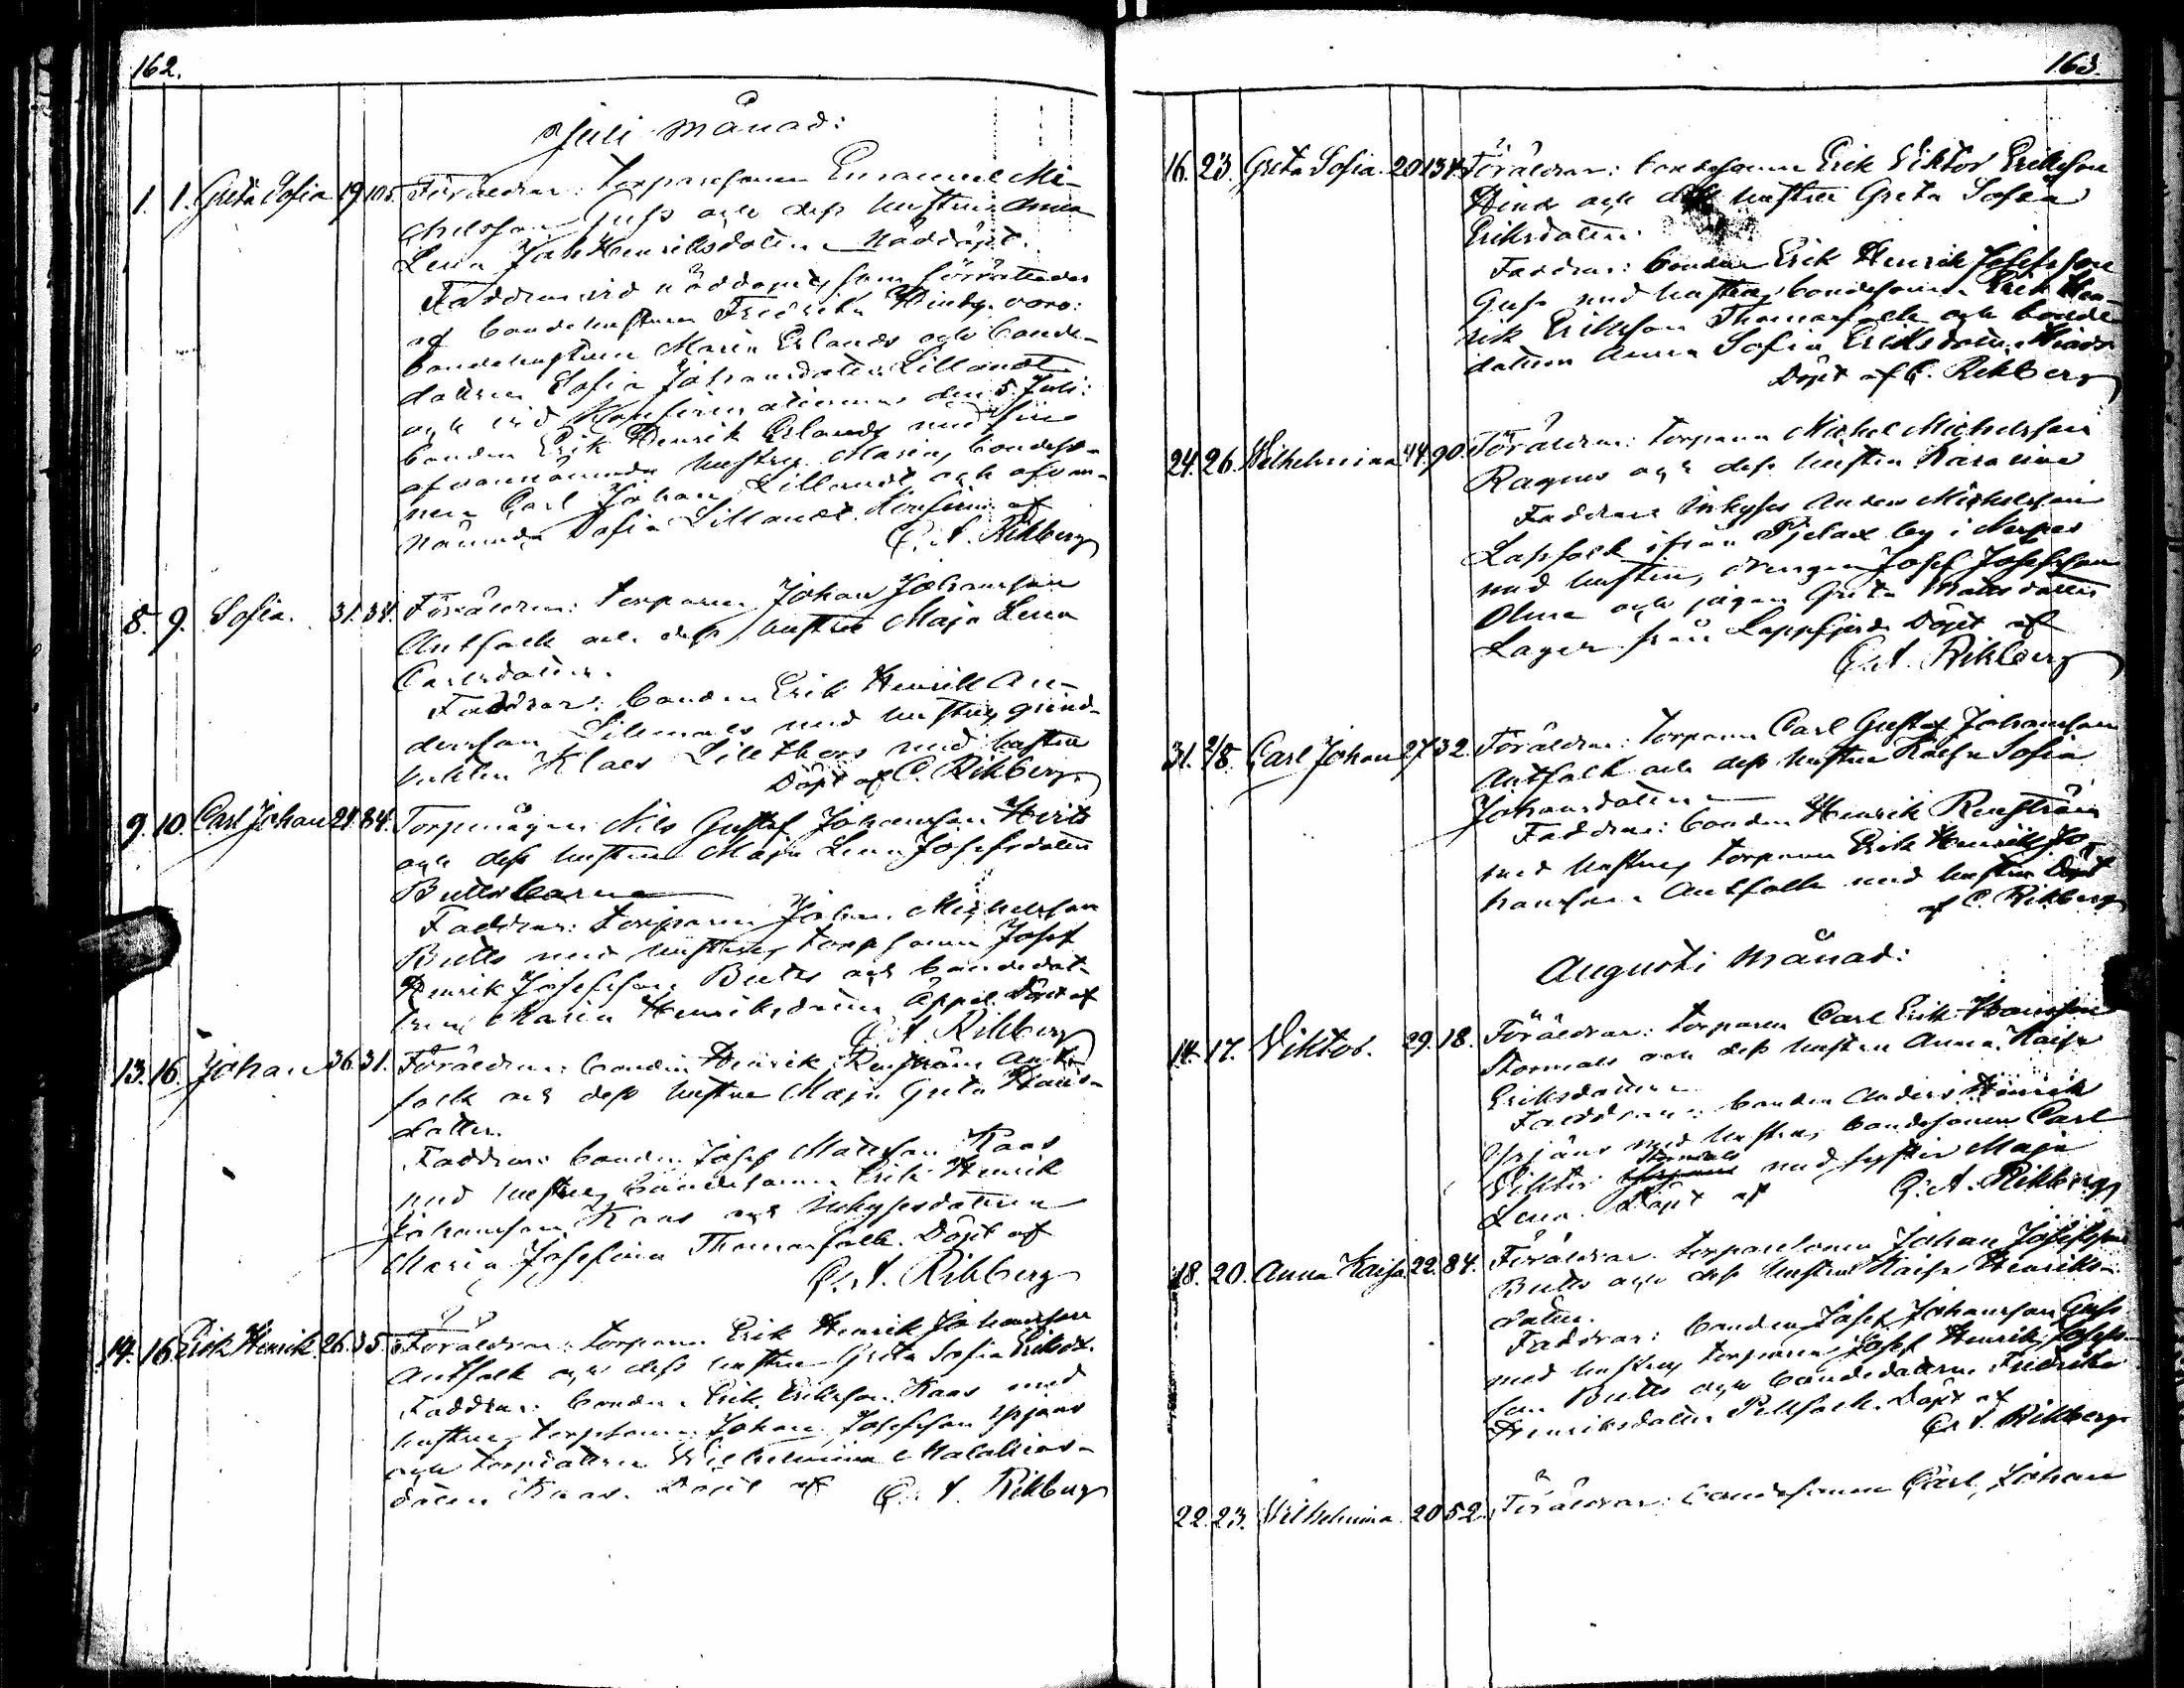 162.
Juli månad:
1. 1. Greta Sofia 19. 105. Föräldrar: torparesonen Emanuel Mi-
chelsson Guss och dess hustru Anna
Lena Joh Henriksdotter Nöddöpt.
Faddrar vid nöddopet, som förrättades
af bondehustrun Fredrika Hinds, voro:
bondehustrun Maria Erlands och bonde-
dottren Sofia Johansdotter Lillandt
och vid Konfirmationen den 5 Juli:
bonden Erik Henrik Erlands med sin
ofvannämnda hustru Maria, bondeso-
nen Carl Johan Lillandt och ofvan-
nämnda Sofia Lillandt. Konfirm. af
C. A. Rikberg
8. 9. Sofia. 31. 34. Föräldrar: torparen Johan Johansson
Antfolk och dess hustru Maja Lena
Carlsdotter.
Faddrar: bonden Erik Henrik An-
dersson Lillmåls med hustru,
Klaes Lillthors med hustru
Döpt af C. Rikberg
9. 10. Carl Johan 29. 84. Torpmågen Nils Gustaf Johansson
och dess hustru Maja Lena Josefsdotter
Butts barn
Faddrar: torparen Johan Michelsson
Butts med hustru, torpsonen Josef
Henrik Josefsson Butts och bondedot-
tren Maria Henriksdotter Äppel. Döpt af
C. A. Rikberg
13. 16. Johan 36. 31. Föräldrar: bonden Henrik Renström Ant-
folk och dess hustru Maja Greta Hans-
dotter.
Faddrar: bonden Josef Mattsson Kaas
med hustru, bondesonen Erik Henrik
Johansson Kaas och inhysesdottren
Maria Josefina Thomasfolk. Döpt af
C. A. Rikberg
14. 16. Erik Henrik 26. 35. Föräldrar: torparen Erik Henrik Johansson
Antfolk och dess hustru Greta Sofia Eriksd.
Faddrar: bonden Erik Eriksson Kaas med
hustru, torpsonen Johan Josefsson Yrjans
och torpdottren Wilhelmina Malakias-
dotter Kaas. Döpt af C. A. Rikberg
163.
16. 23. Greta Sofia. 20 134. Föräldrar: bondesonen Erik Viktor Eriksson
Hinds och dess hustru Greta Sofia
Eriksdotter.
Faddrar: bonden Erik Henrik Josefsson
Guss med hustru, bondesonen Erik Hen-
rik Eriksson Thomasfolk och bonde-
dottren Anna Sofia Eriksdotter Hinds
Döpt af C. Rikberg
24. 26. Wilhelmina 44. 90. Föräldrar: torparen Michel Michelsson
Ragnus och dess hustru Karolina
Faddrar inhyses Anders Michelsson
Lassfolk ifrån Pjelax by i Nerpes
med hustru, drengen Josef Josefsson
Olma och pigan Greta Mattsdotter
Lager från Lappfjerd. Döpt af
C. A. Rikberg
31. 2/8. Carl Johan 27. 32. Föräldrar: torparen Carl Gustaf Johansson
Antfolk och dess hustru Kajsa Sofia
Johansdotter
Faddrar: bonden Henrik Renström
med hustru, torparen Erik Henrik Jo-
hansson Antfolk med hustru Döpt
af C. Rikberg
Augusti månad:
14. 17. Viktor. 29. 18. Föräldrar: torparen Carl Erik Hansson
Stormåls och dess hustru Anna Kaisa
Eriksdotter
Faddrar: bonden Anders Henrik
Yrjans med hustru, bondesonen Carl
Viktor Stormåls med syster Maja
Lena. Döpt af C. A. Rikberg
18. 20. Anna Kaisa 22. 84. Föräldrar torparesonen Johan Josefsson
Butts och dess hustru Kaisa Henriks-
dotter.
Faddrar: bonden Josef Johansson Guss
med hustru, torparen Josef Henrik Josefs-
son Butts och bondedottren Fredrika
Henriksdotter Pellfolk. Döpt af
C. A. Rikberg
22. 23. Wilhelmina 20 52. Föräldrar: bondesonen Carl Johan